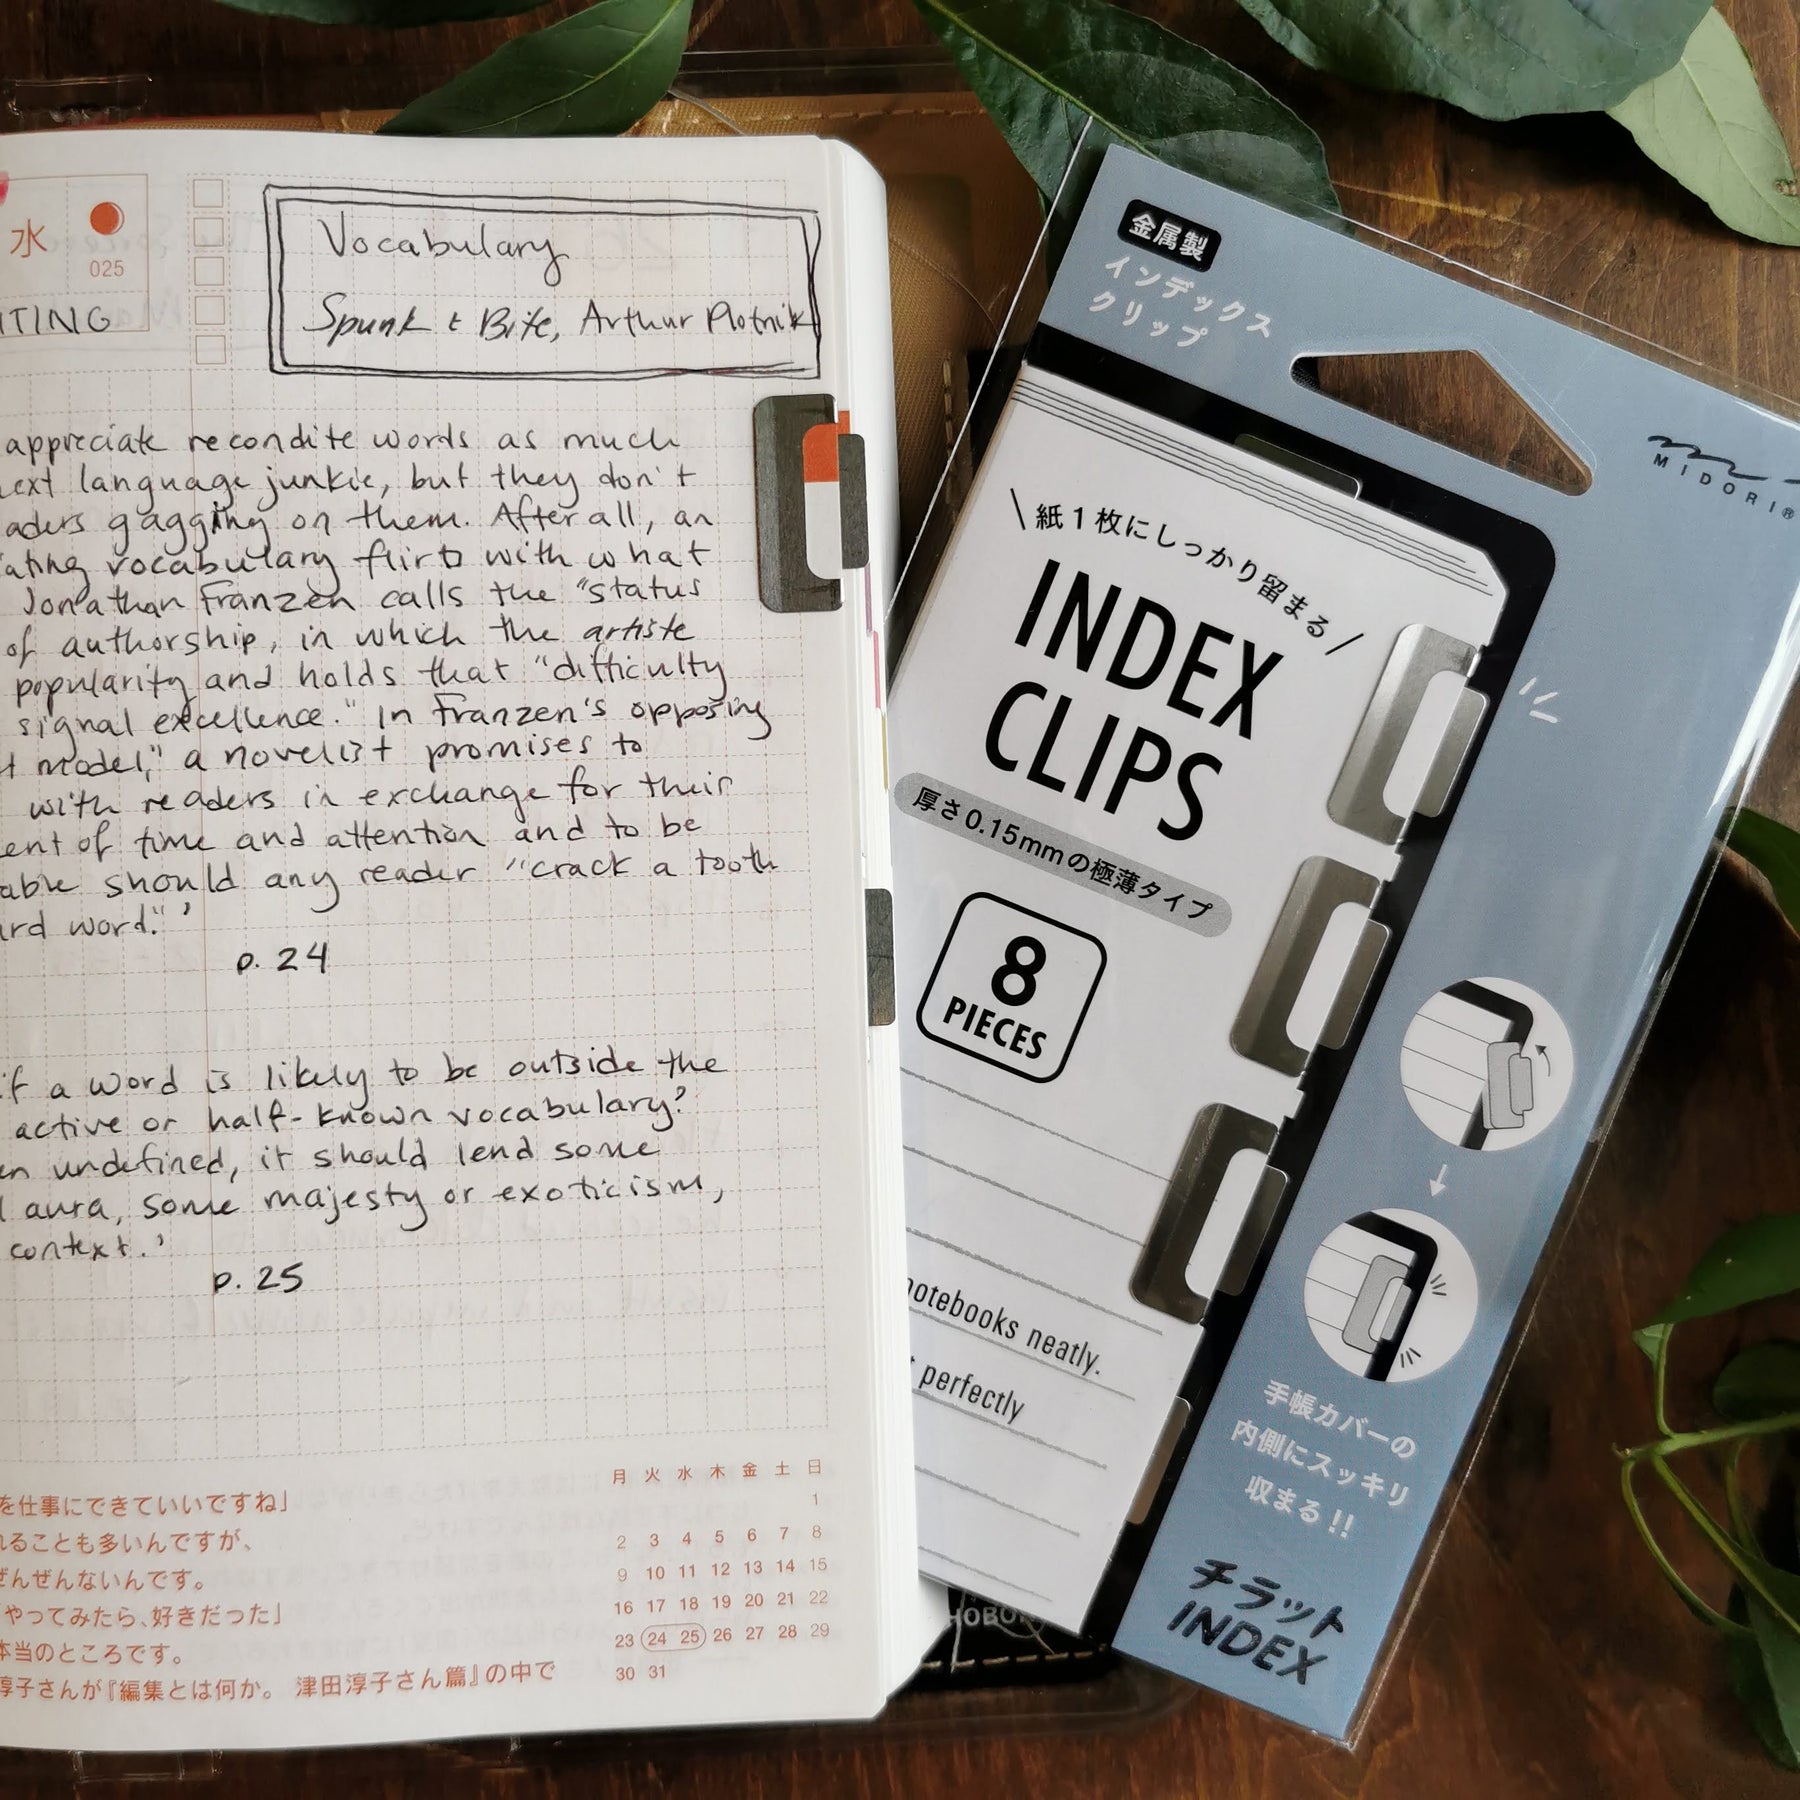 水
025
ITING
Vocabulary
Spunk & Bite, Arthur Plotnik
appreciate recondite words as much
next language junkie, but they don't
aders gagging on them. After all, an
ating vocabulary flirts with what
Jonathan Franzen calls the "status
of authorship, in which the artiste
popularity and holds that "difficulty
signal excellence." In Franzen's opposing
model," a novelist promises to
with readers in exchange for their
ent of time and attention and to be
able should any reader "crack a tooth
ard word."'
p. 24
if a word is likely to be outside the
active or half-known vocabulary?
en undefined, it should lend some
aura, some majesty or exoticism,
context.'
p. 25
を仕事にできていいですね」
れることも多いんですが、
ぜんぜんないんです。
やってみたら、好きだった」
本当のところです。
淳子さんが『編集とは何か。 津田淳子さん篇』の中で
月 火 水 木 金 土 日
1
2 3 4 5 6 7 8
9 10 11 12 13 14 15
16 17 18 19 20 21 22
23 24 25 26 27 28 29
30 31
金属製
インデックス
クリップ
MIDORI®
紙1枚にしっかり留まる
INDEX
CLIPS
厚さ0.15mmの極薄タイプ
8
PIECES
notebooks neatly.
perfectly
手帳カバーの
内側にスッキリ
収まる!!
チラット
INDEX